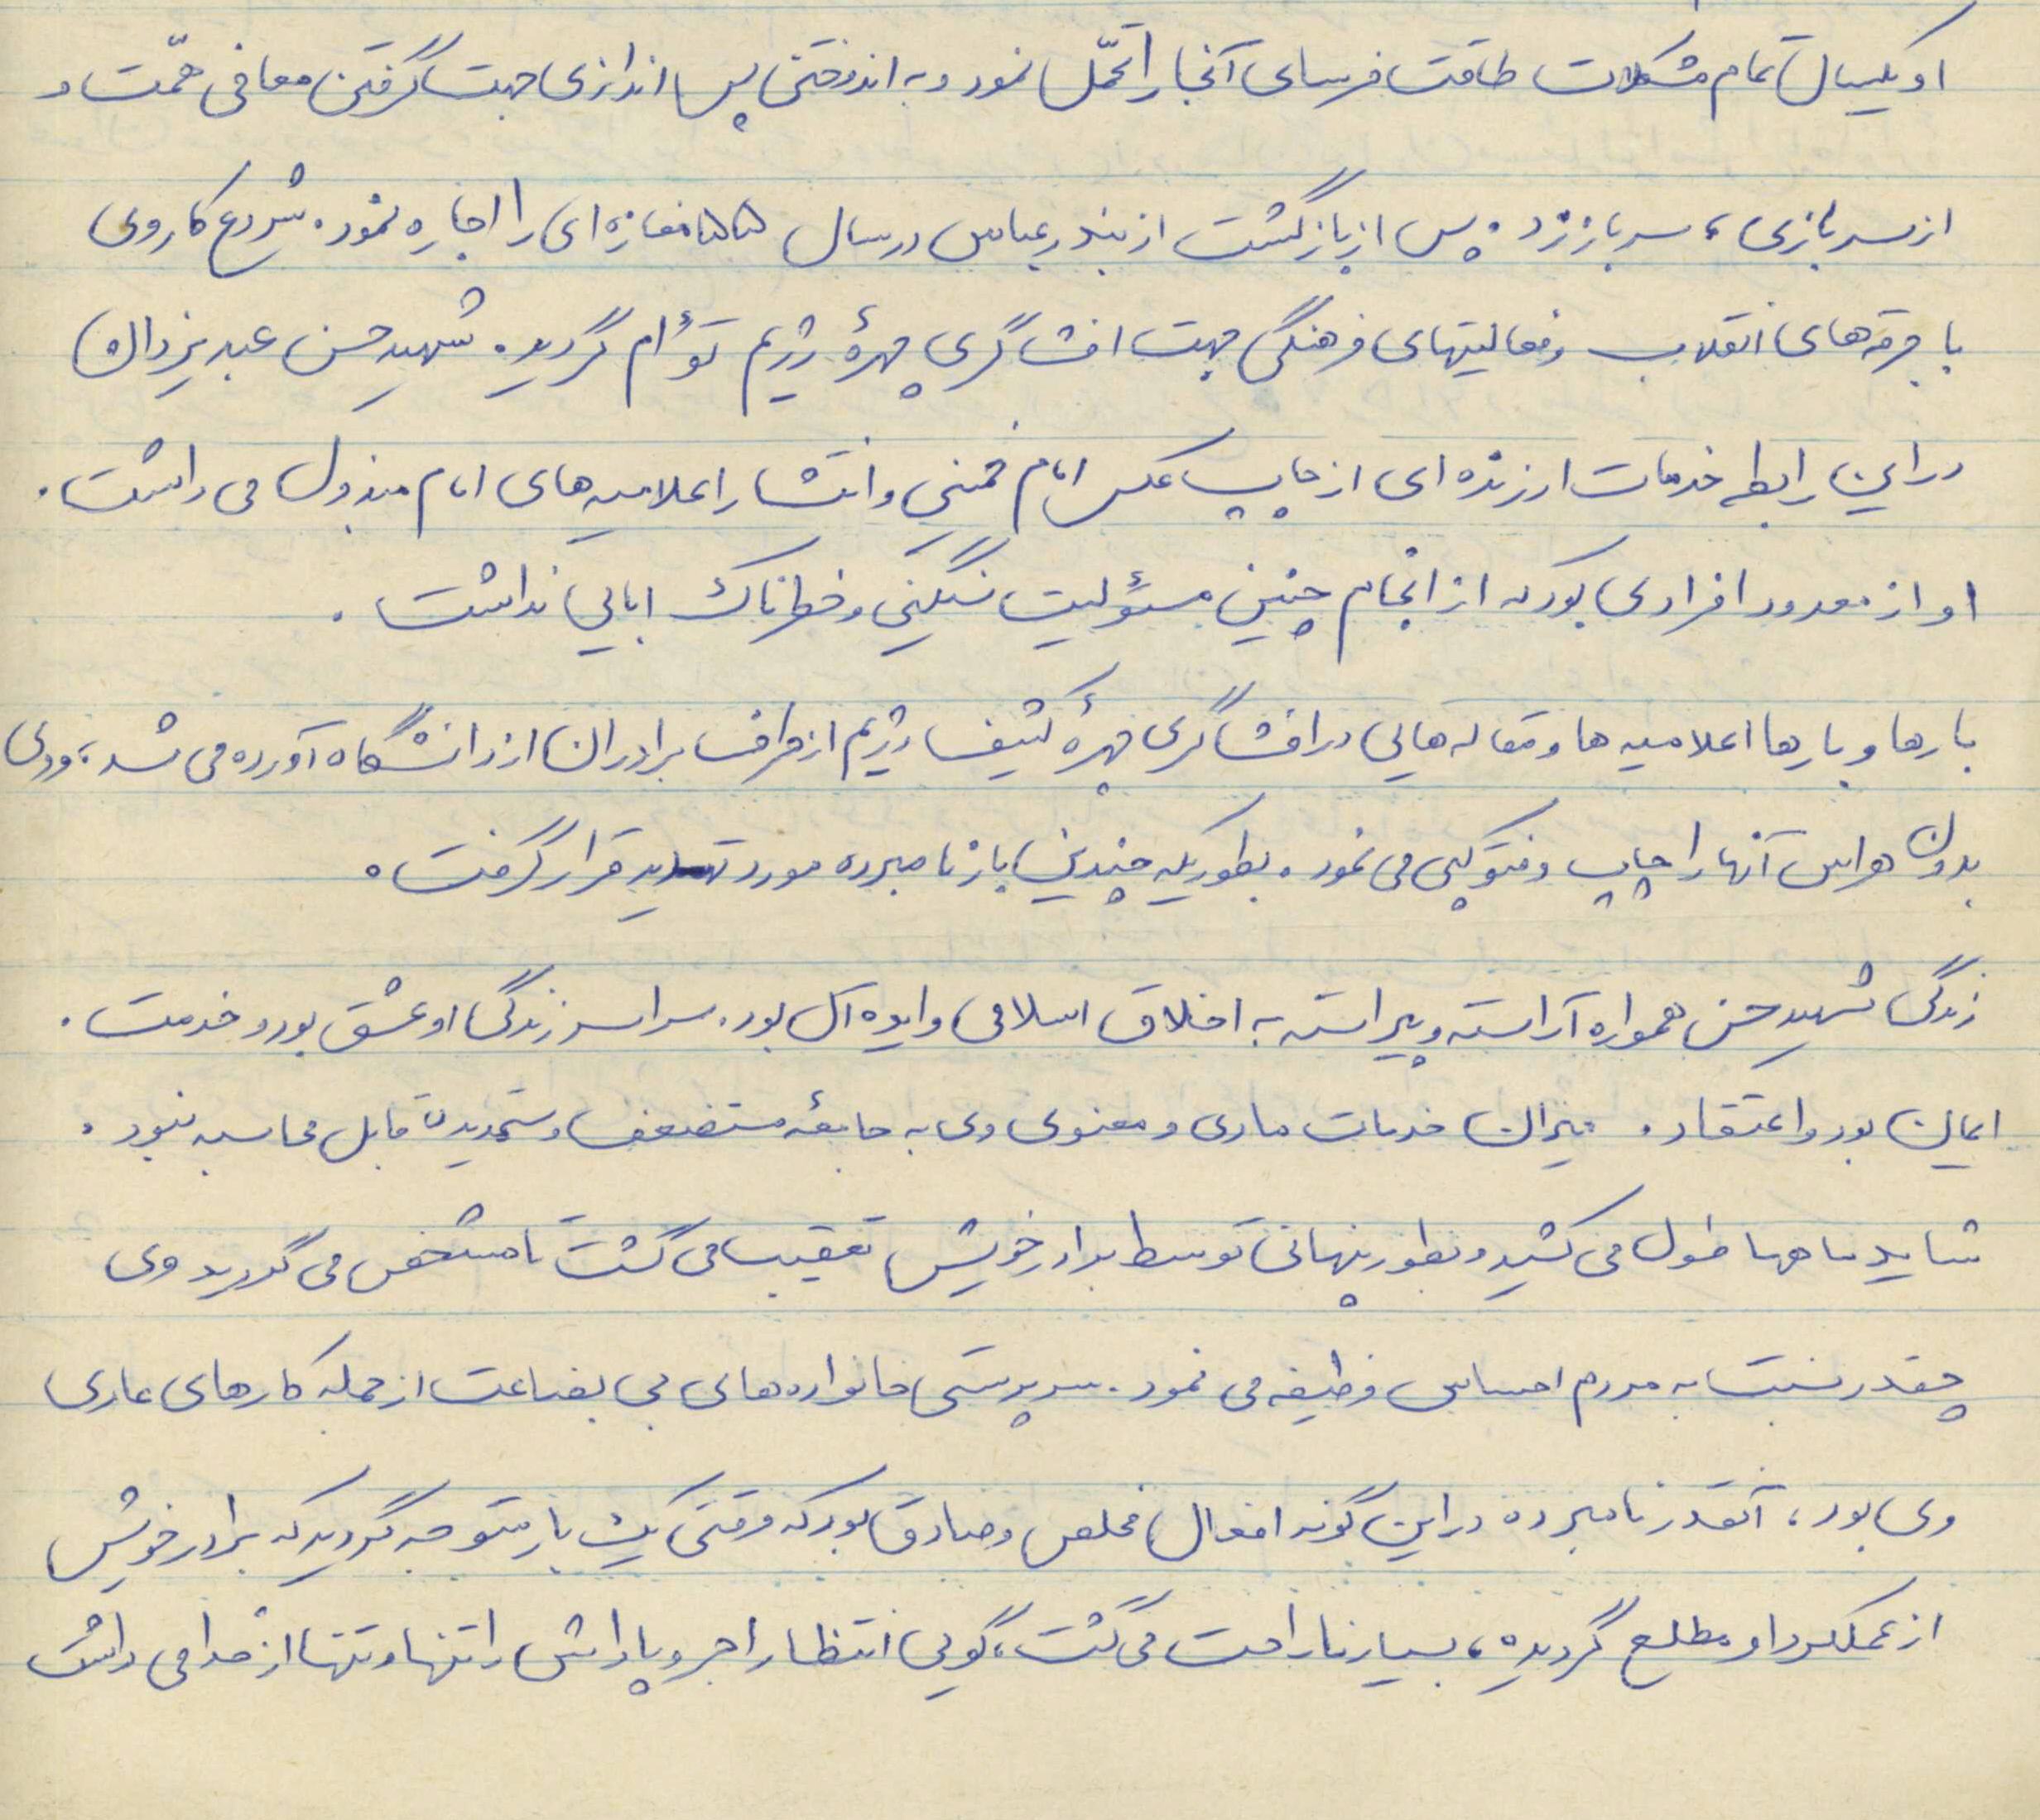 او یکسال تمام مشکلات طاقت فرسای آنجا را تحمّل نمود و به اندوختن پس اندازی جهت گرفتن معافی همّت و
از سربازی، سرباز زد. پس از بازگشت از بندرعباس در سال ۵۵ مغازه‌ای را اجاره نمود. شروع کار وی
با جرقه‌های انقلاب و فعالیتهای فرهنگی جهت افشاگری چهرهٔ رژیم توأم گردید. شهید حسن عبدیزدان)
در این رابطه خدمات ارزنده‌ای از چاپ عکس امام خمینی و انتشار اعلامیه‌های امام مبذول می داشت.
او از معدود افرادی بود که از انجام چنین مسؤلیت سنگینی و خطرناک ابایی نداشت.
بارها و بارها اعلامیه‌ها و مقاله‌هایی در افشاگری چهرهٔ کثیف رژیم از طرف برادران از دانشگاه آورده می شد، و وی
بدون هراس آنها را چاپ و فتوکپی می نمود. بطوریکه چندین بار نامبرده مورد تهدید قرار گرفت.
زندگی شهید حسن همواره آراسته و پیراسته به اخلاق اسلامی و ایده آل بود. سراسر زندگی او عشق بود و خدمت.
ایمان بود و اعتقاد. میزان خدمات مادی و معنوی وی به جامعهٔ مستضعف و ستمدیده قابل محاسبه نبود.
شاید ماهها طول می کشید و بطور پنهانی توسط برادر خویش تعقیب می گشت تا مشخص می گردید وی
چقدر نسبت به مردم احساس وظیفه می نمود. سرپرستی خانواده‌های بی بضاعت از جمله کارهای عادی
وی بود، آنقدر نامبرده در این گونه افعال مخلص و صادق بود که وقتی یک بار متوجه گردید که برادر خویش
از عملکرد او مطلع گردیده، بسیار ناراحت می گشت، گویی انتظار اجر و پاداش را تنها و تنها از خدا می داشت